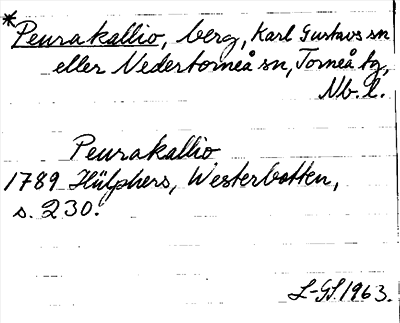 *Peurakallio, berg, Karl Gustavs sn
eller Nedertorneå sn, Torneå tg,
Nb. l.
Peurakallio
1789 Hülphers, Westerbotten,
s. 230.
L-GS. 1963.